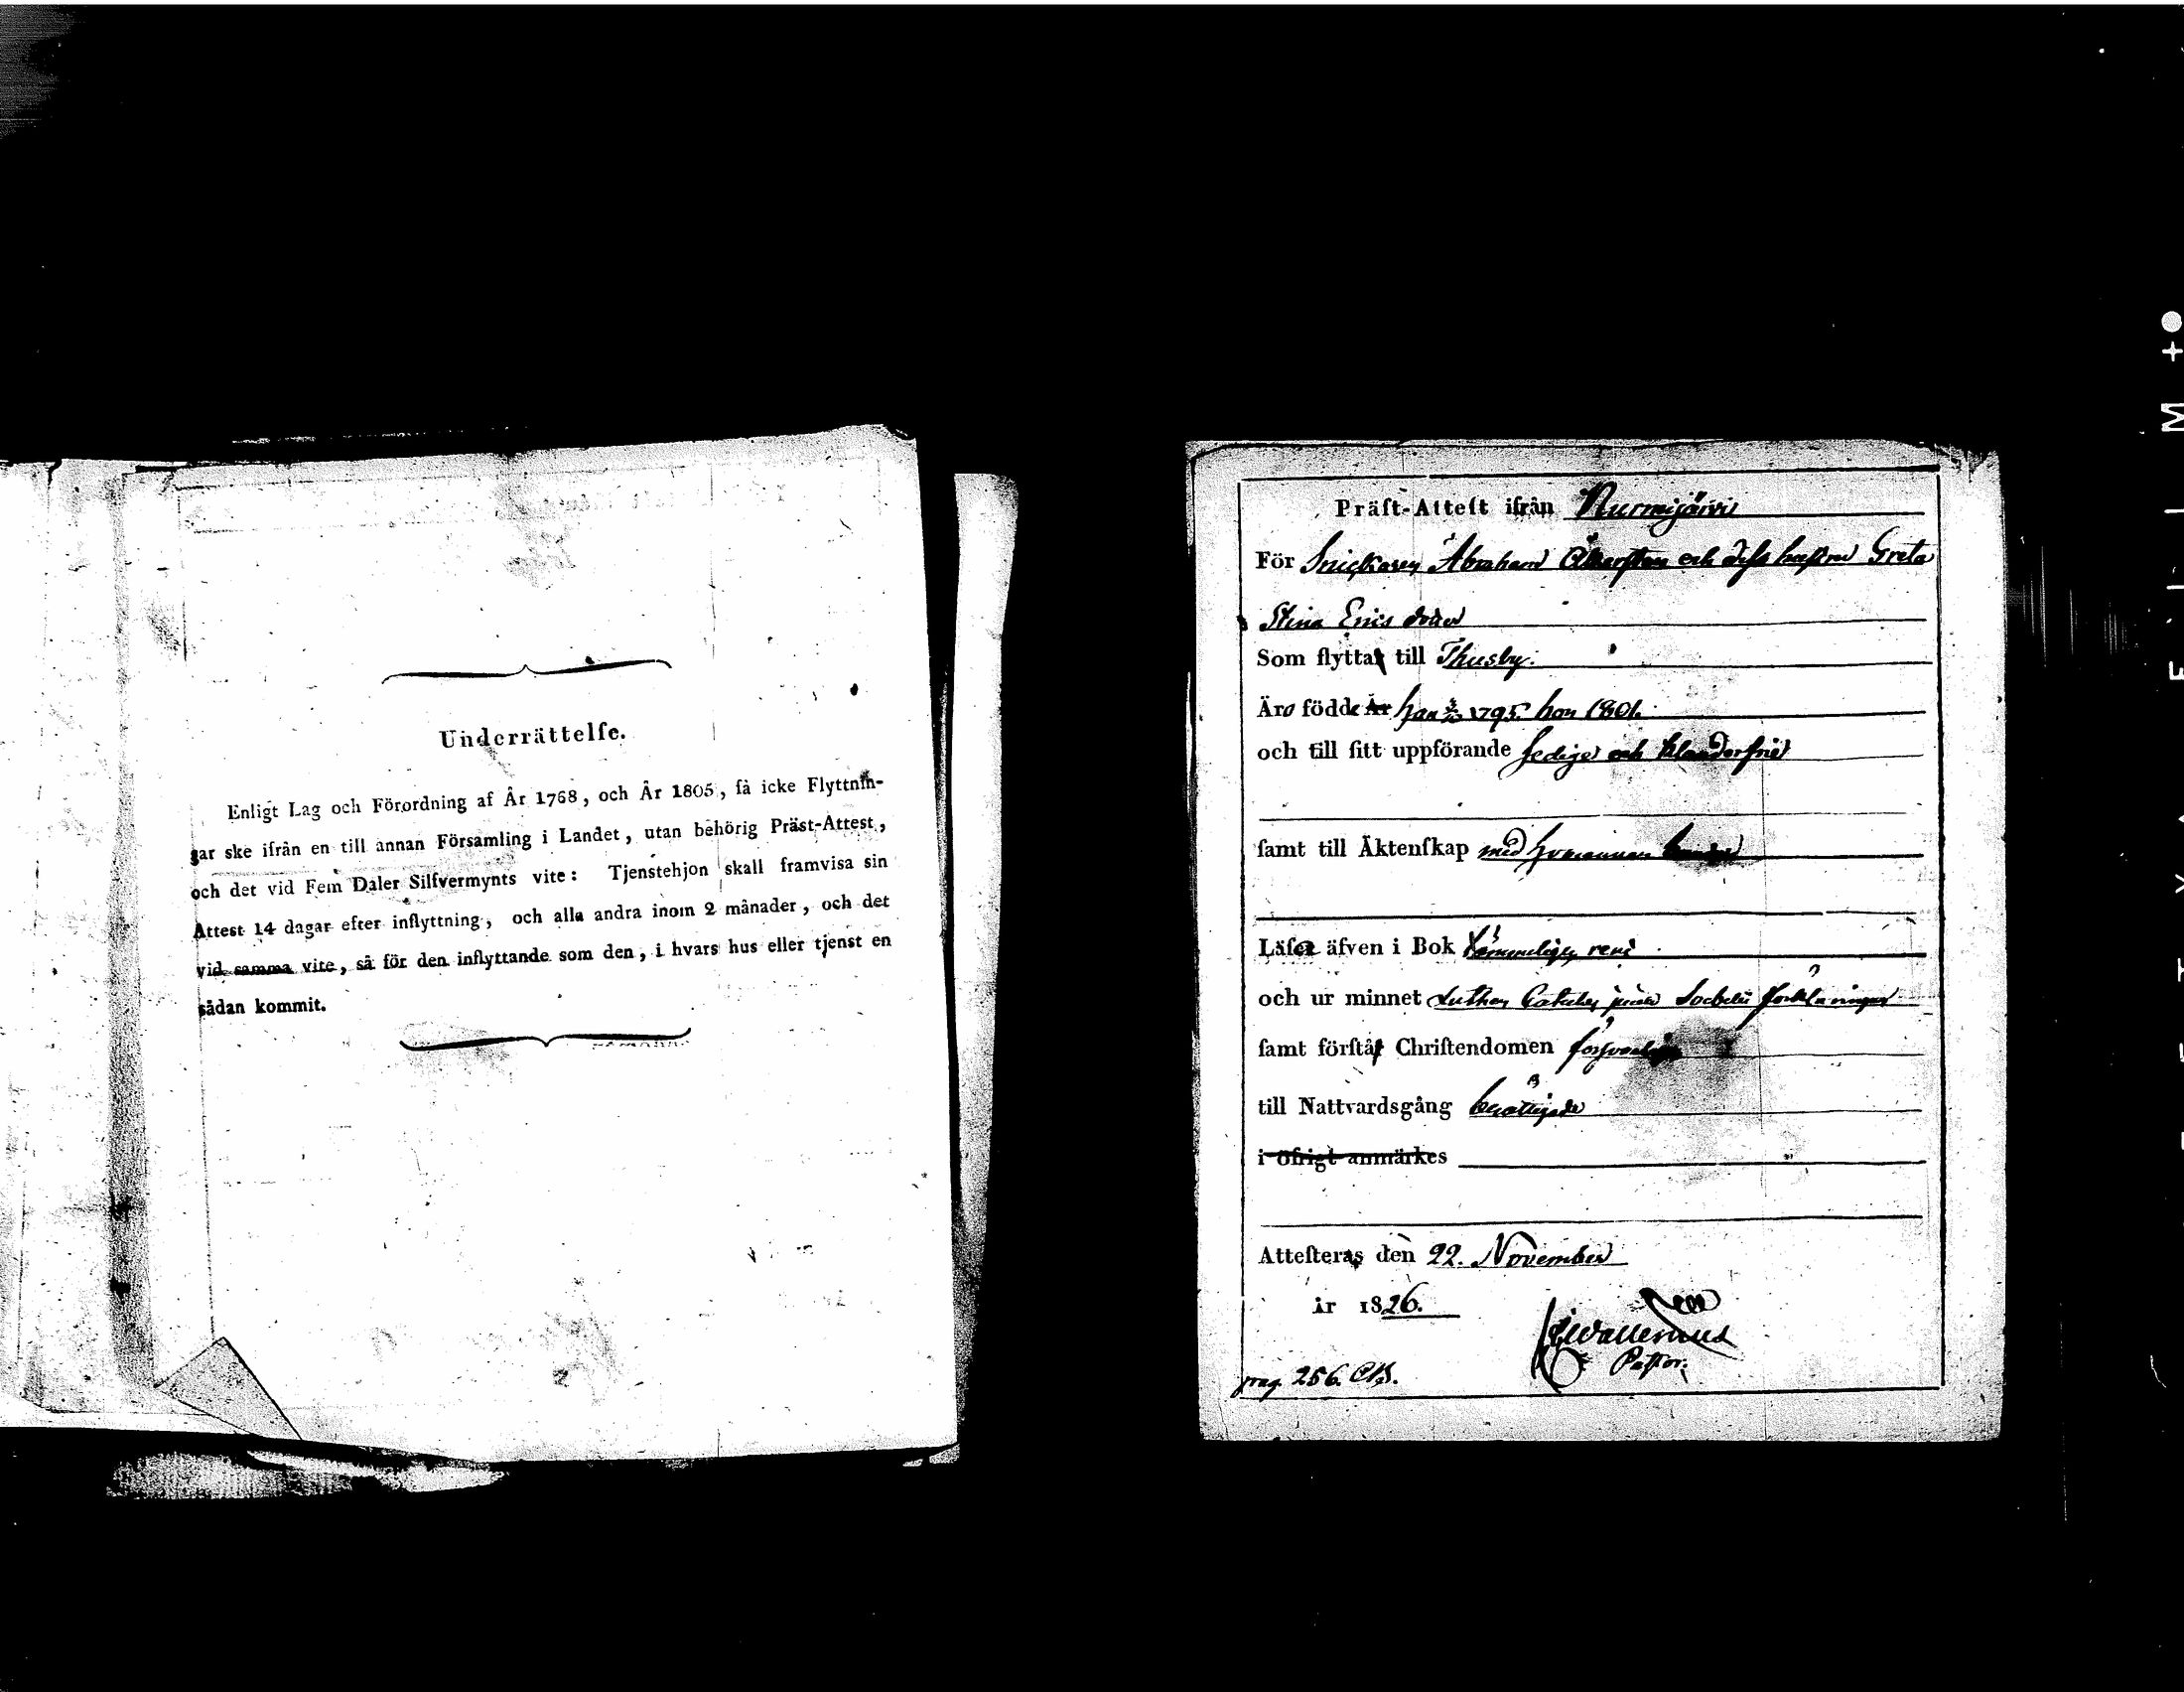 Underrättelse.
Enligt Lag och Förordning af År 1768, och År 1805, få icke Flyttnin-
gar ske ifrån en till annan Församling i Landet, utan behörig Präst-Attest,
och det vid Fem Daler Silfvermynts vite: Tjenstehjon skall framvisa sin
Attest 14 dagar efter inflyttning, och alla andra inom 2 månader, och det
vid samma vite, så för den inflyttande som den, i hvars hus eller tjenst en
sådan kommit.
Präst-Attest ifrån Nurmijärvi
För Snickaren Abraham Åkersten och dess hustru Greta
Stina Erics dotter
Som flytta till Thusby.
Äro födde År han 1795. hon 1801.
och till sitt uppförande sedige och klanderfrie
samt till Äktenskap med hvarannan
Läsa äfven i Bok rene
och ur minnet Luthers Catches Soebelii förklaringar
samt förstå Christendomen försvarligen
till Nattvardsgång berättigade
i öfrigt anmärkes
Attesteras den 22. November
år 1826.
Wallenius
Pastor.
pag. 256.